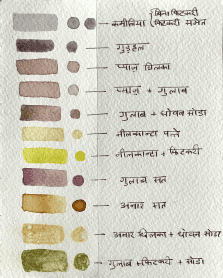 कमीलिया { बिना फिटकरी
फिटकरी समेत
गुड़हल
प्याज़ छिलका
प्याज़ + गुलाब
गुलाब + धोवन सोडा
नीलकान्टा पत्ते
नीलकान्टा + फिटकरी
गुलाब सत
अनार सत
अनार छिलका + धोवन सोडा
गुलाब + फिटकरी + सोडा